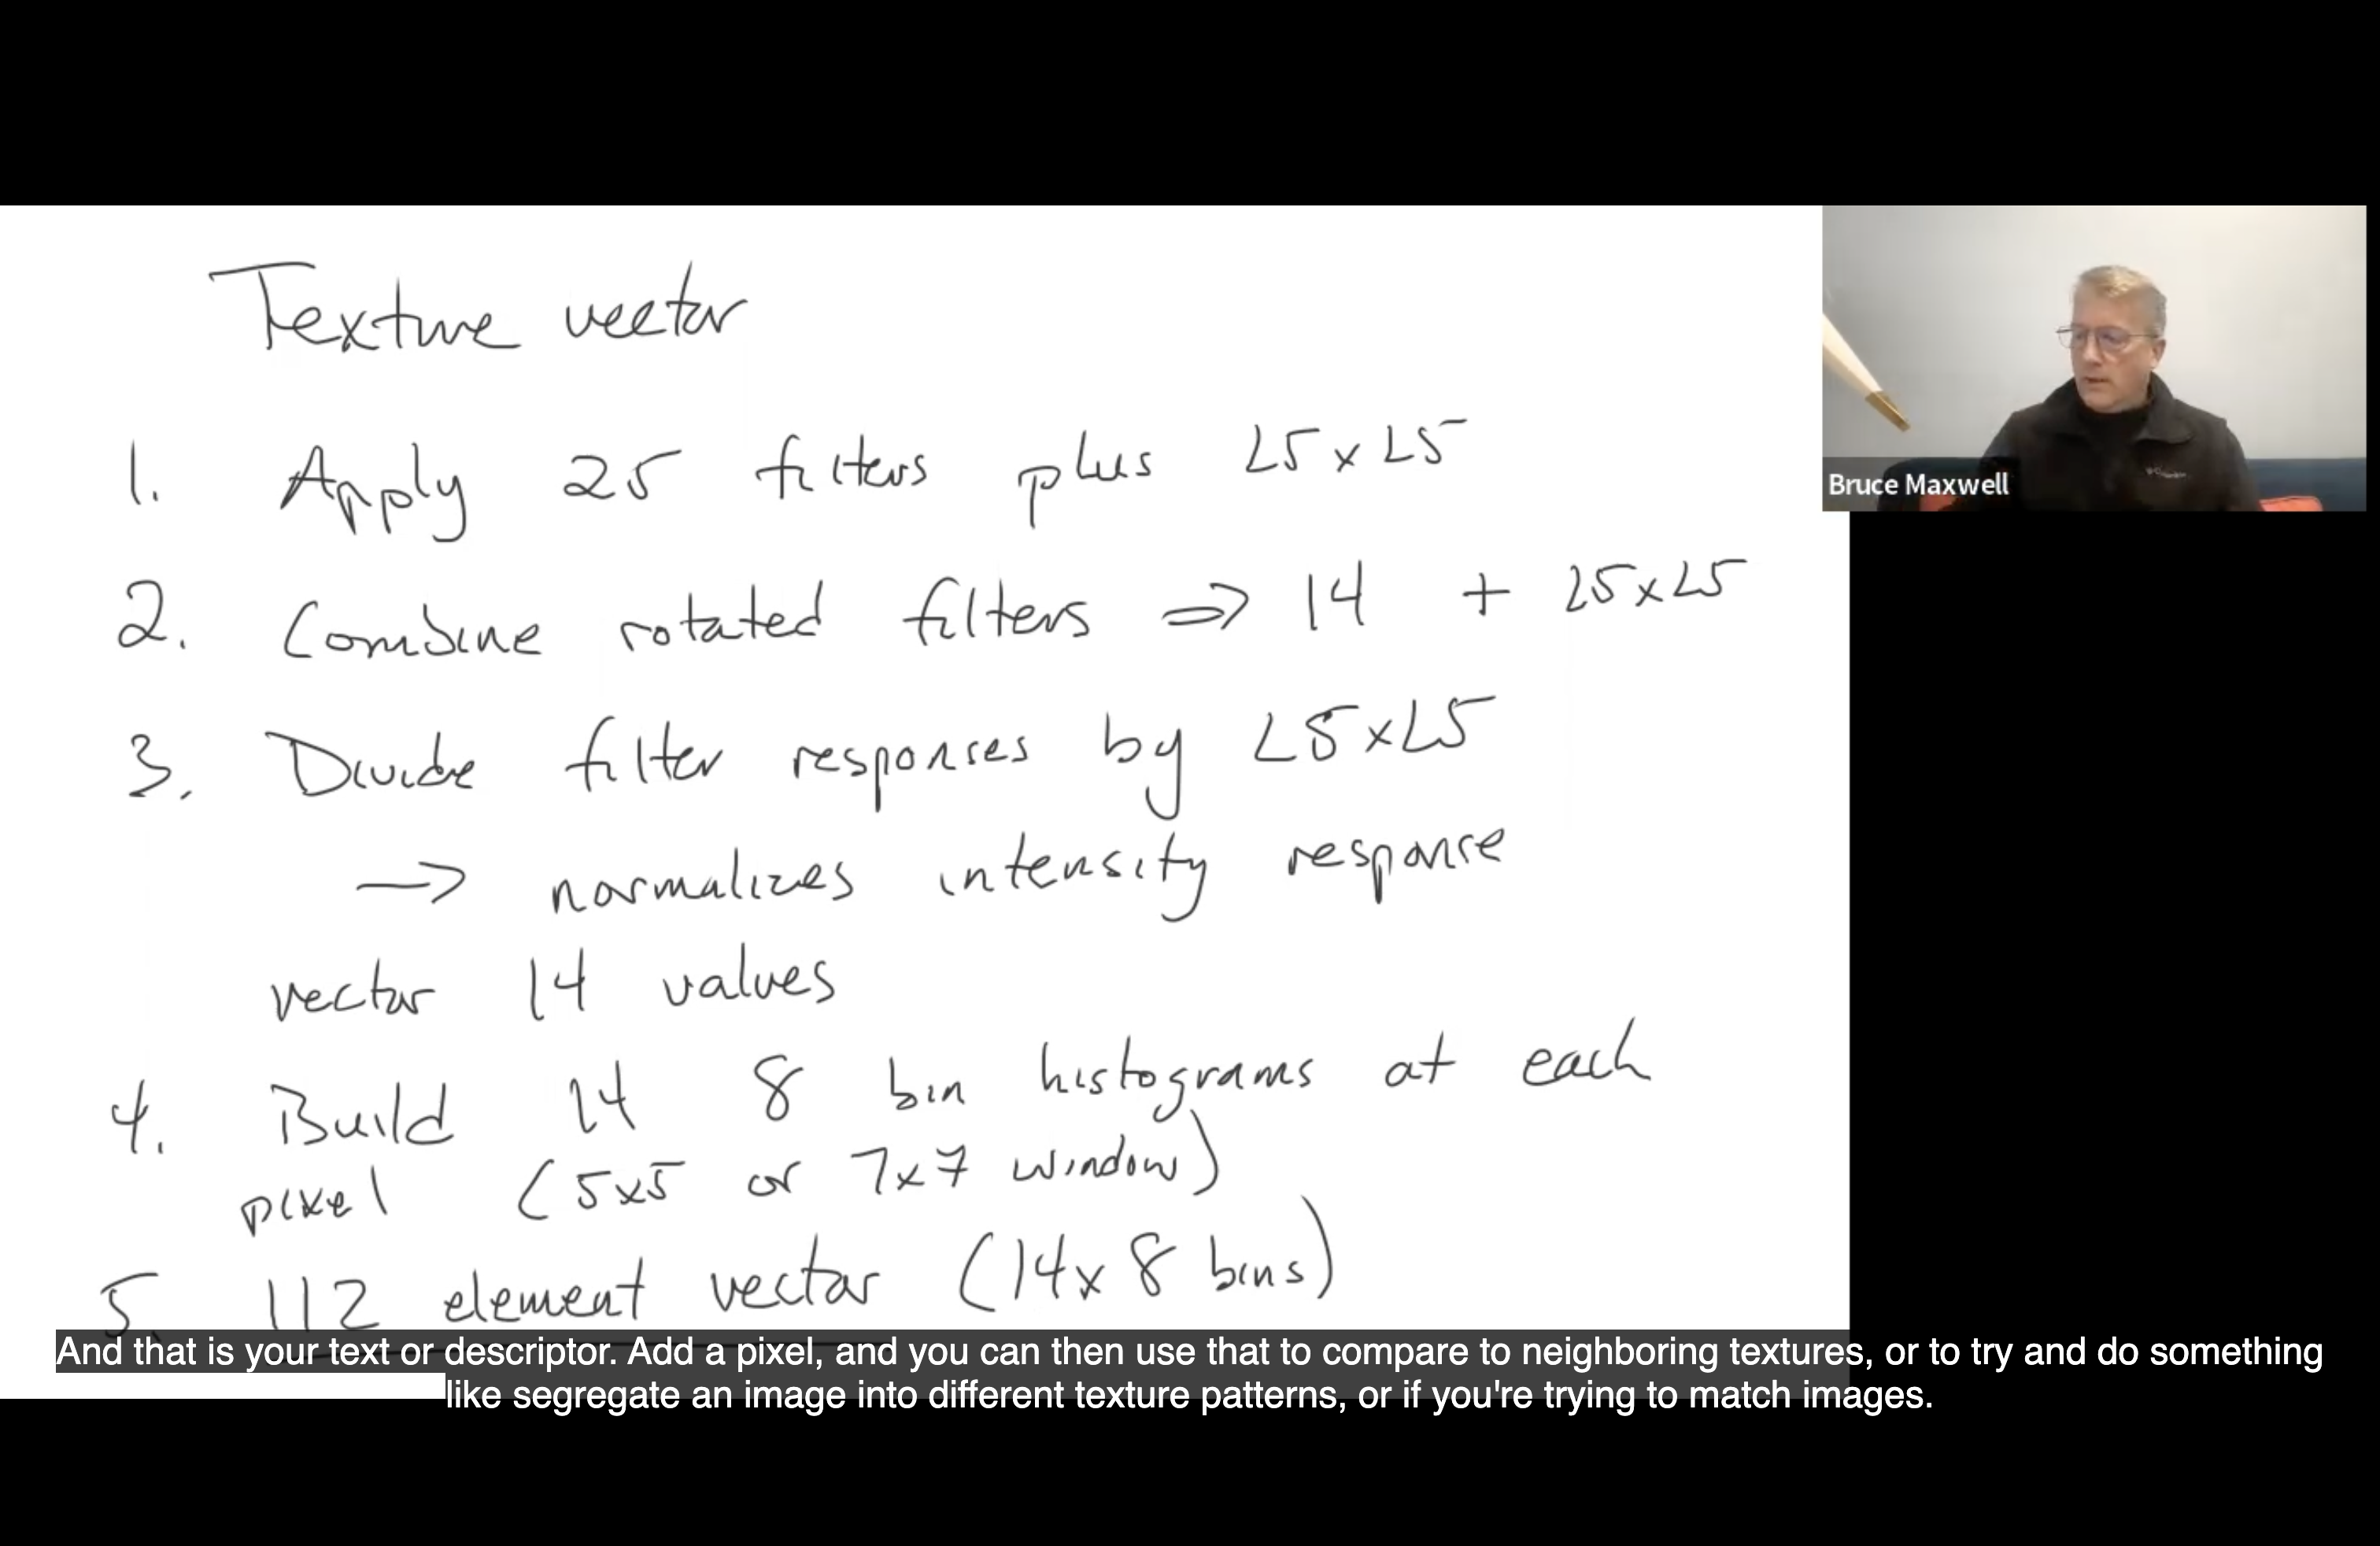 Texture vector
1. Apply 25 filters plus L5xL5
2. Combine rotated filters ⇒ 14 + L5xL5
3. Divide filter responses by L5xL5
→ normalizes intensity response
vector 14 values
4. Build 14 8 bin histograms at each
pixel (5x5 or 7x7 window)
5. 112 element vector (14x8 bins)
Bruce Maxwell
And that is your text or descriptor. Add a pixel, and you can then use that to compare to neighboring textures, or to try and do something
like segregate an image into different texture patterns, or if you're trying to match images.